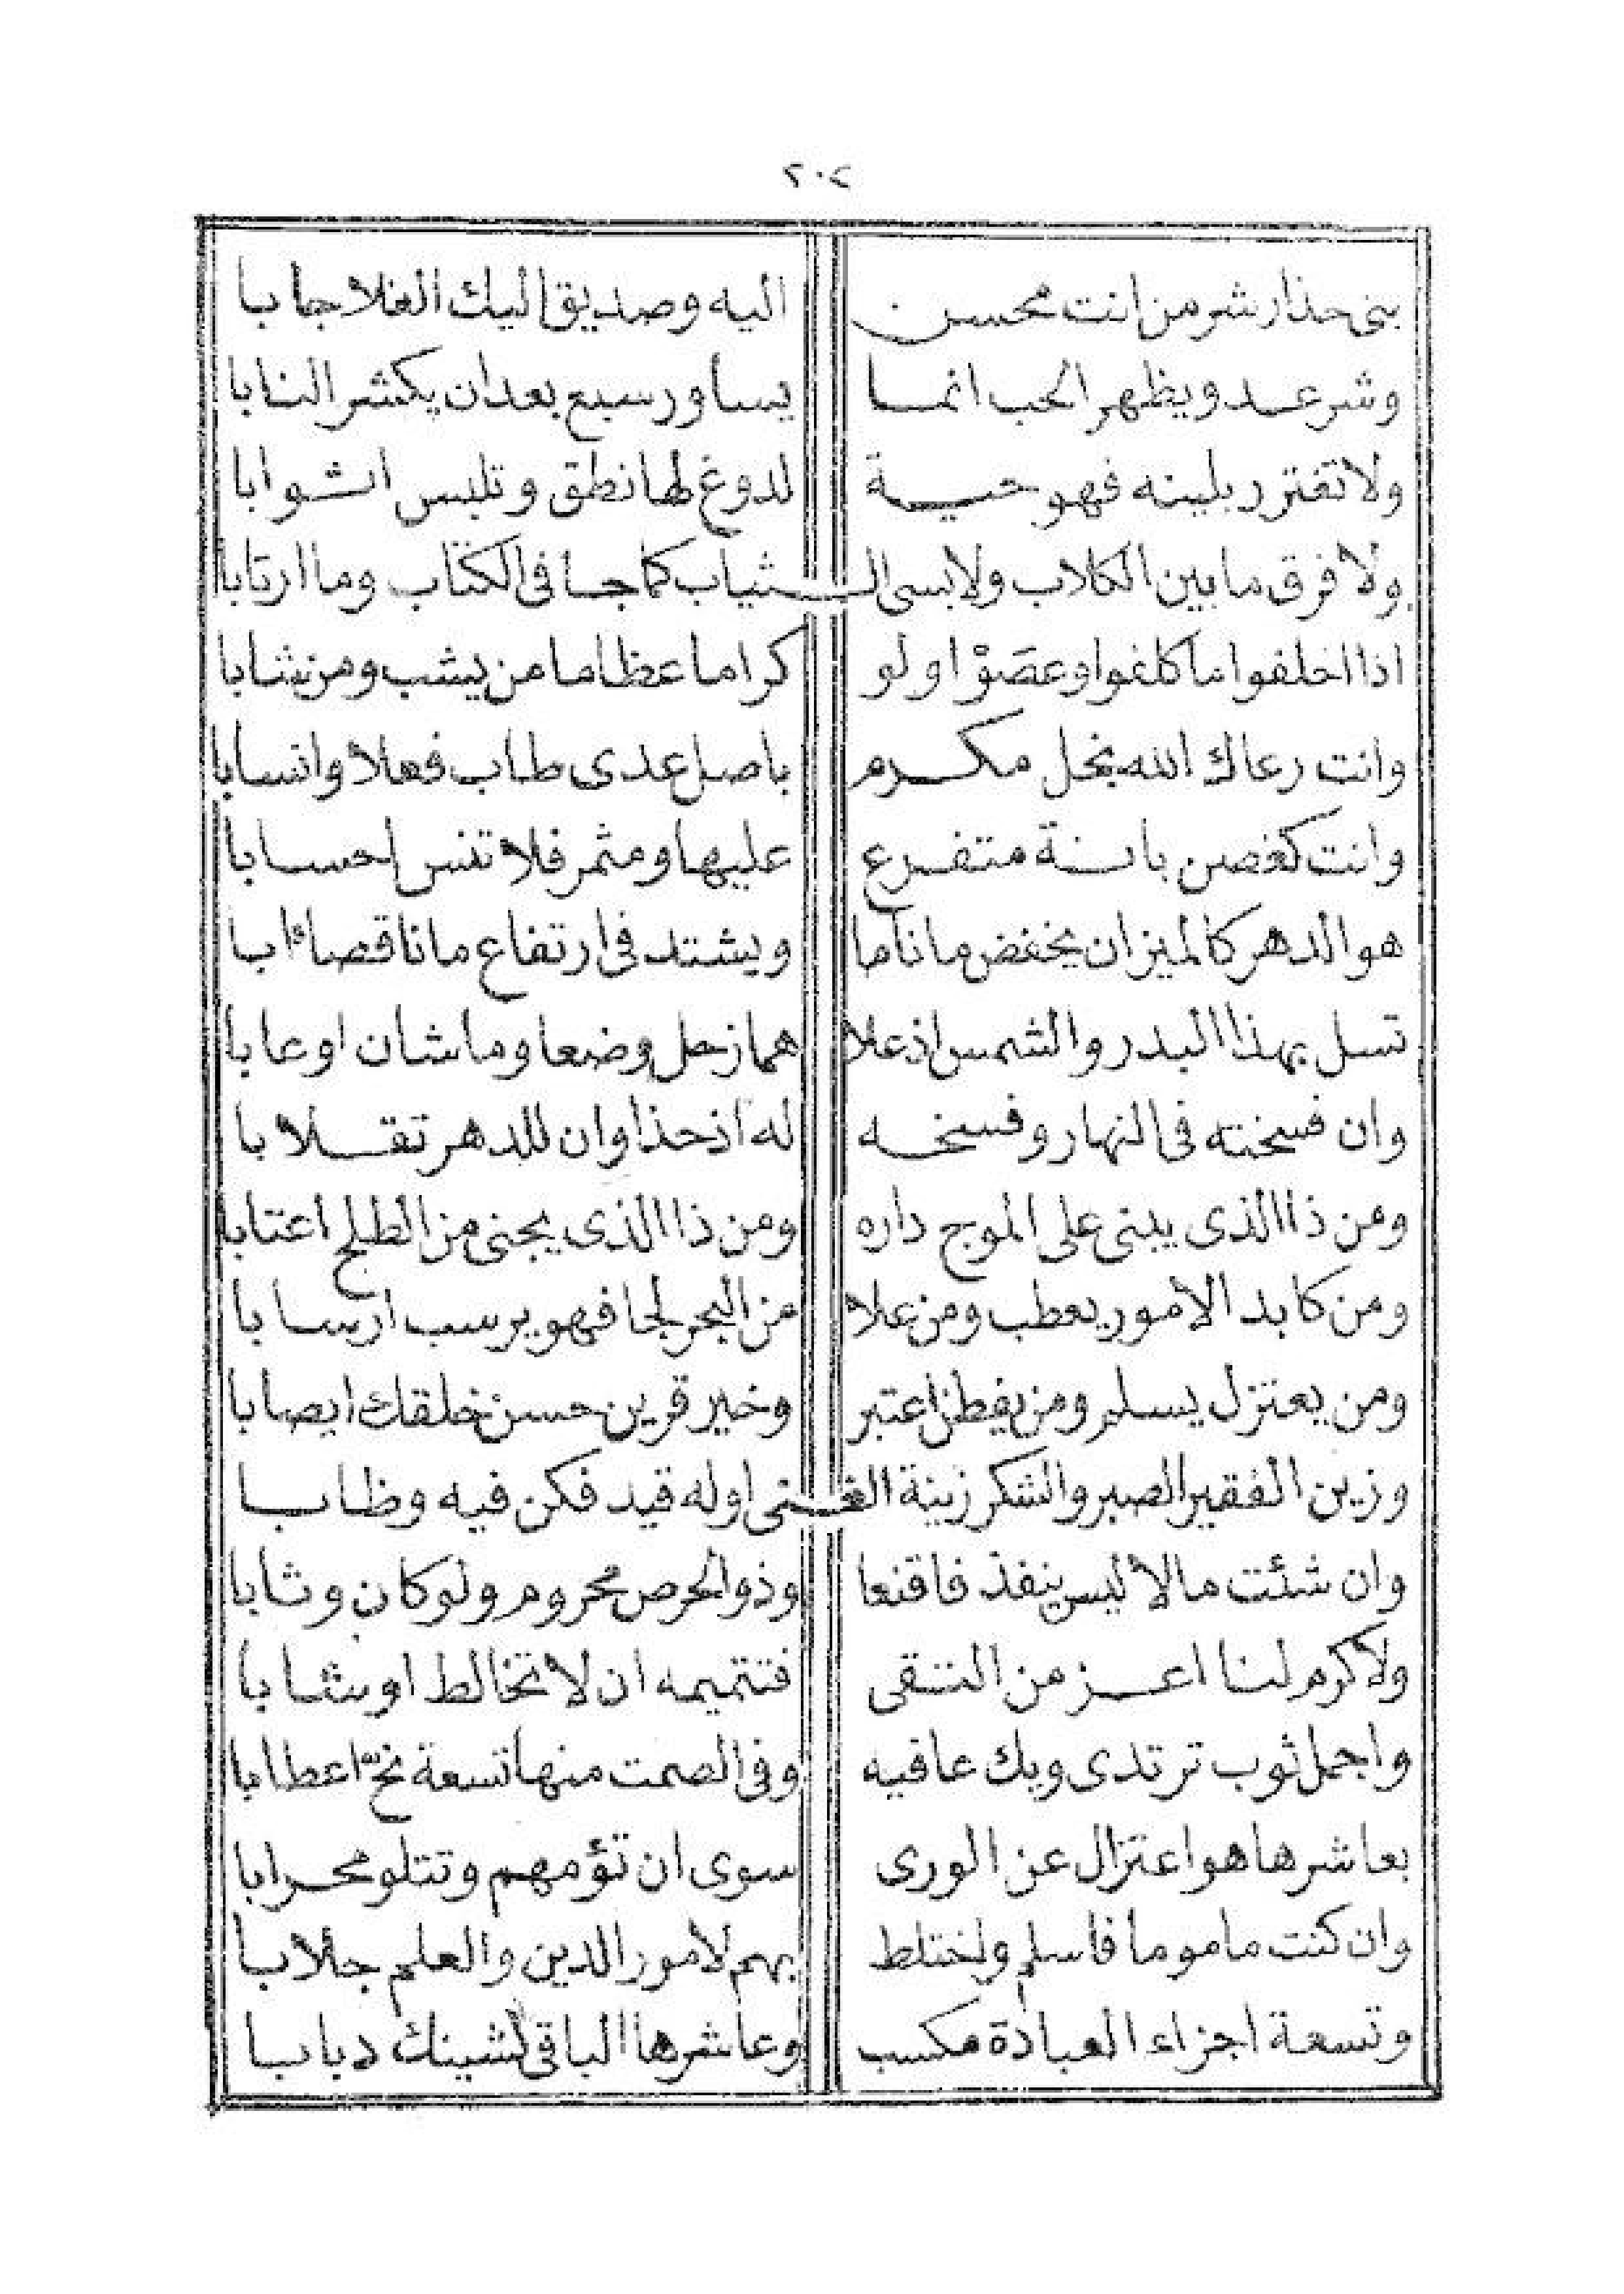 ٢٠٢
بنى حذار شر من انت محسن اليه وصديق اليك الغلا جابا
وشر عدو يظهر الحب انما يساور سبع بعد ان يكشر النابا
ولا تغترر بلينه فهو حية لدوغ لها نطق وتلبس اثوابا
ولا فرق ما بين الكلاب ولابسى الثياب كما جا فى الكتاب وما ارتابا
اذا اخلفوا ما كلفوا وعصوا ولو كراما عظاما من يشب ومن شابا
وانت رعاك الله نجل مكرم باصل عدى طاب فعلا وانسابا
وانت كغصن بانة متفرع عليها ومثمر فلا تنس احسابا
هو الدهر كالميزان يخفض ما ناما ويشتد فى ارتفاع ما ناقصا اب
تسل بهذا البدر والشمس اذ علا هما زحل وضعا وما شان او عابا
وان فسخته فى النهار وفسخه له اذ حذا وان للدهر تقلابا
ومن ذا الذى يبنى على الموج داره ومن ذا الذى يجنى من الطلح اعنابا
ومن كابد الامور يعطب ومن علا من البحر لجا فهو يرسب ارسابا
ومن يعتزل يسلم ومن يفطن اعتبر وخير قرين حسن خلقك ايصابا
وزين الفقير الصبر والشكر زينة الغنى اوله قيد فكن فيه وظابا
وان شئت مالا ليس ينفذ فاقنعا وذو الحرص محروم ولو كان وثابا
ولا كرم لنا اعز من التقى فتتميمه ان لا تخالط اوشابا
واجمل ثوب ترتدى ويك عافيه وفى الصمت منها تسعة نخ اعطابا
بعاشرها هو اعتزال عن الورى سوى ان تؤمهم وتتلو محرابا
وان كنت ماموما فاسلم ولختلط بهم لامور الدين والعلم جلابا
وتسعة اجزاء العبادة مكسب وعاشرها الباقى لشينك دبابا